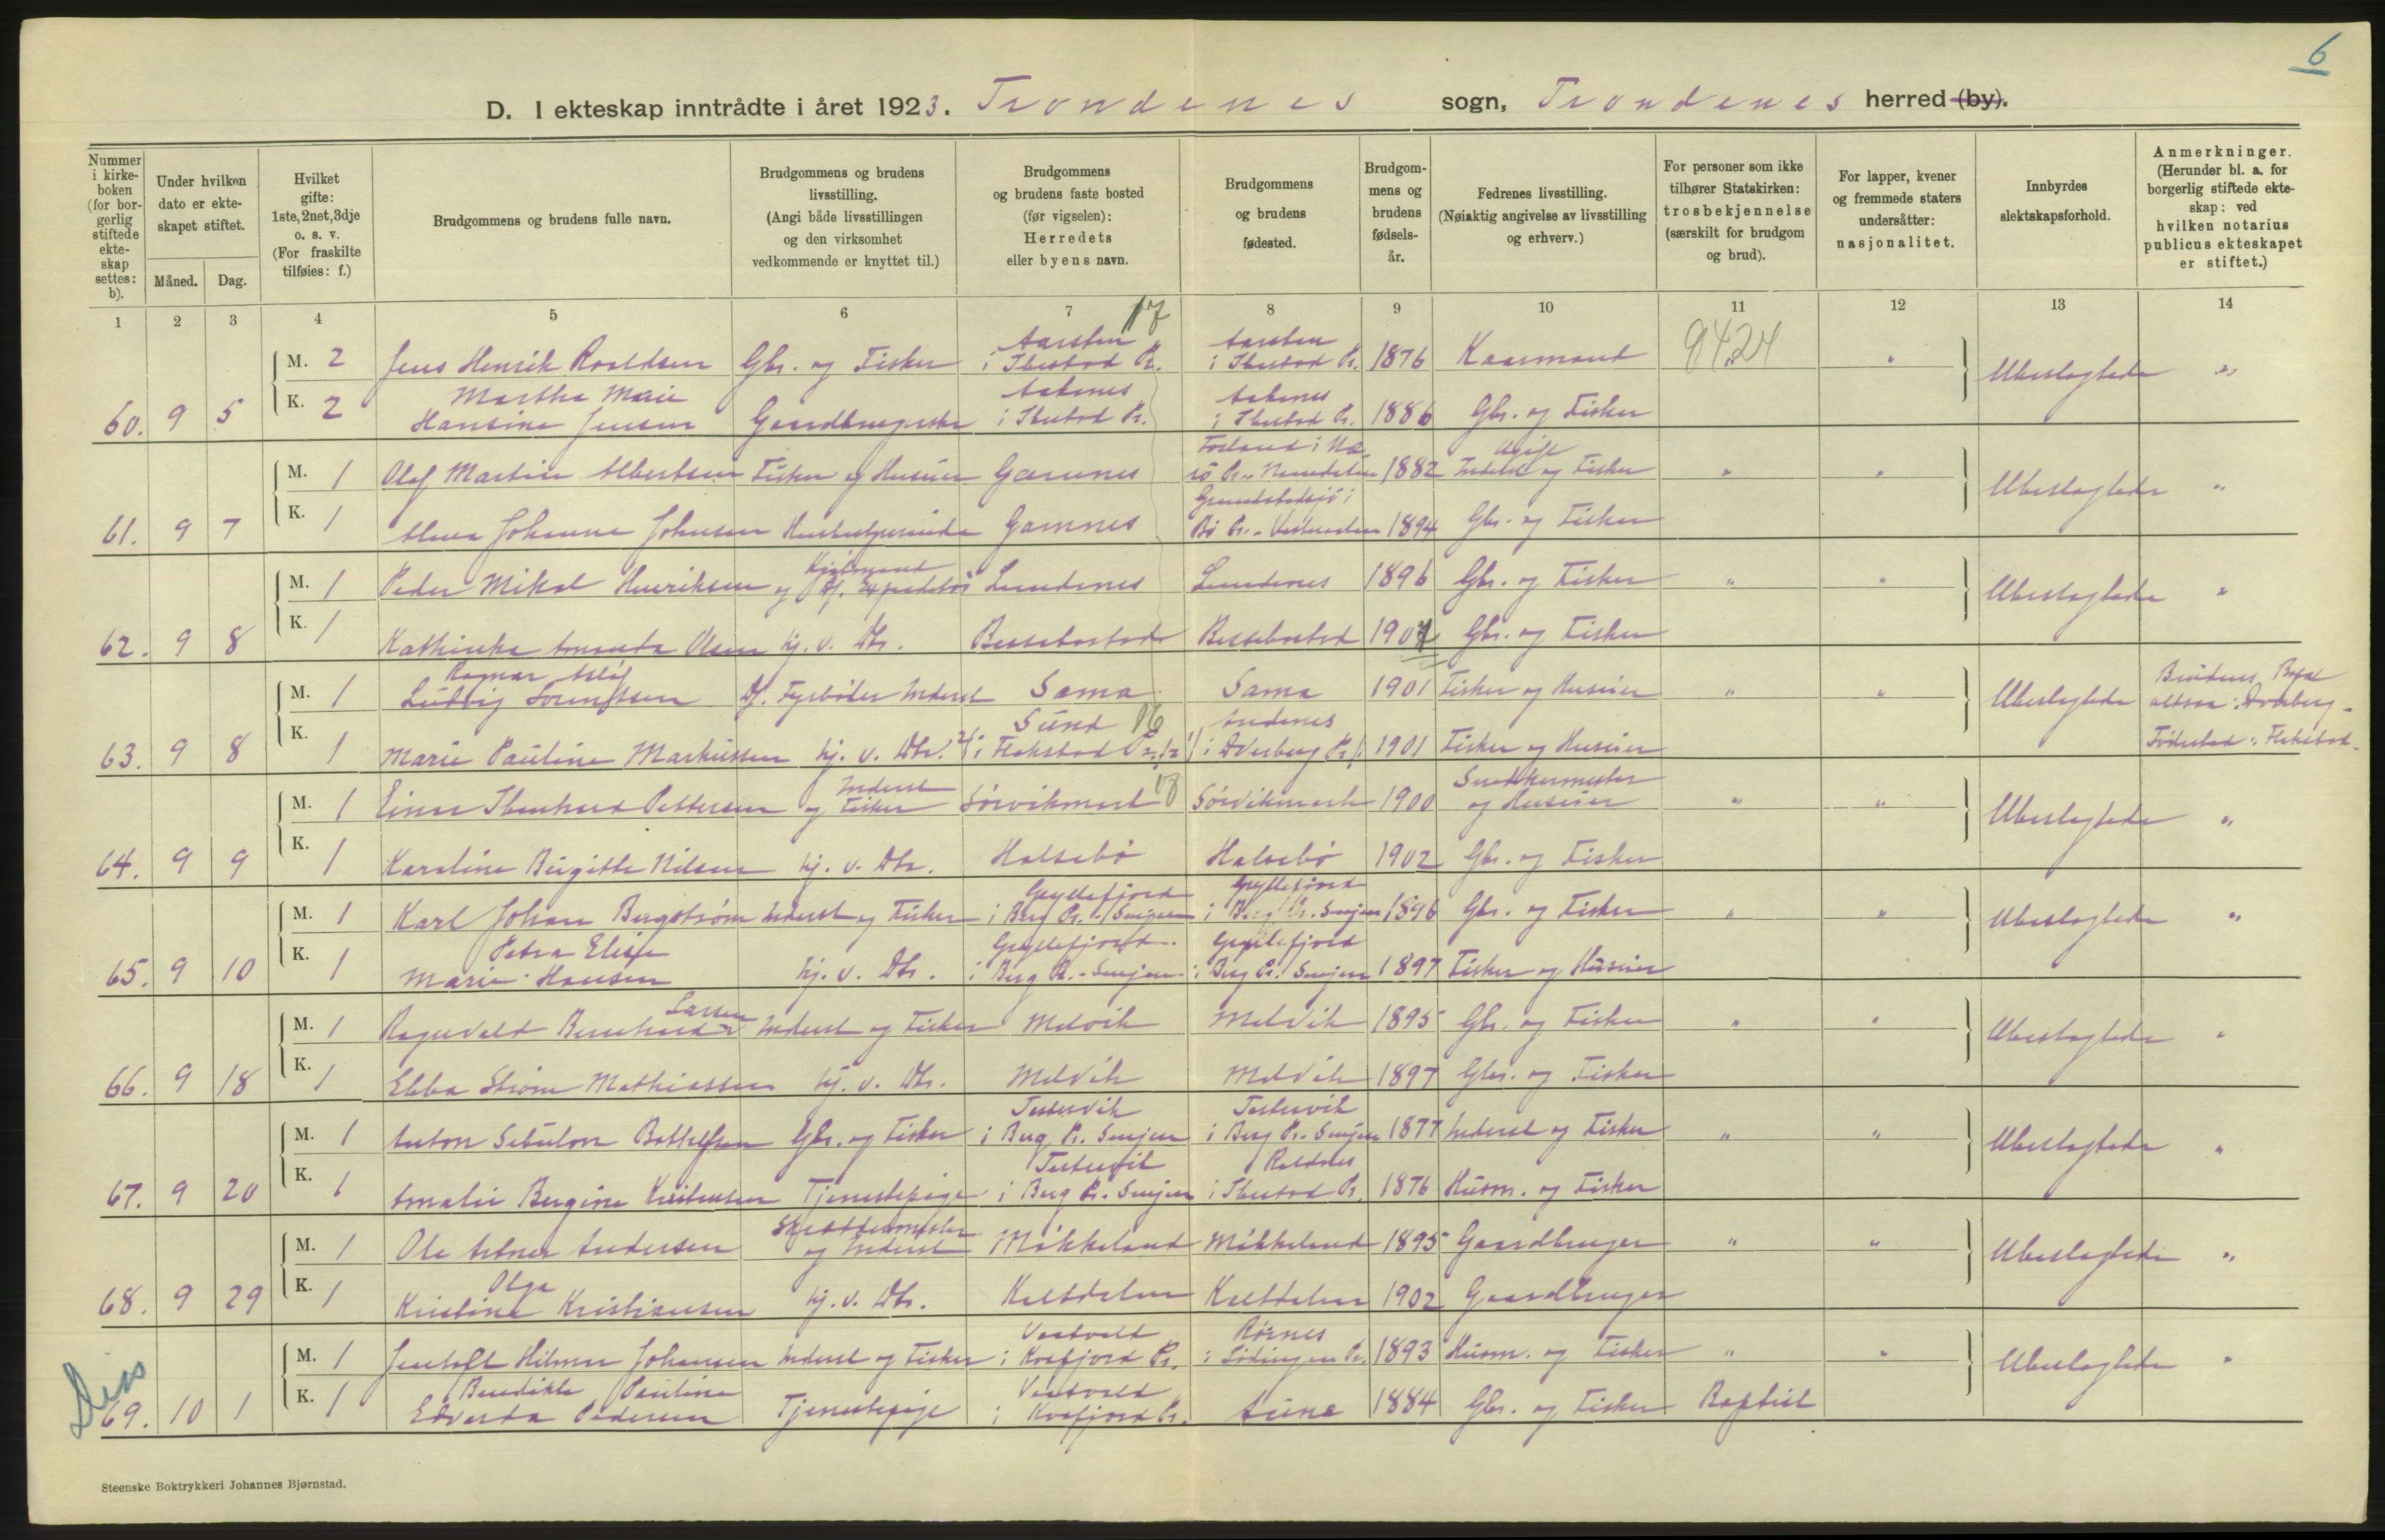 6
D. I ekteskap inntrådte i året 1923. Trondenes sogn, Trondenes herred (by).
Nummer i kirkeboken (for borgerlig stiftede ekteskap settes: b).
Under hvilken dato er ekteskapet stiftet.
Måned. Dag.
Hvilket gifte: 1ste, 2net, 3dje o. s. v. (For fraskilte tilføies: f.)
Brudgommens og brudens fulle navn.
Brudgommens og brudens livsstilling. (Angi både livsstillingen og den virksomhet vedkommende er knyttet til.)
Brudgommens og brudens faste bosted (før vigselen): Herredets eller byens navn.
Brudgommens og brudens fødested.
Brudgommens og brudens fødselsår.
Fedrenes livsstilling. (Nøiaktig angivelse av livsstilling og erhverv.)
For personer som ikke tilhører Statskirken: trosbekjennelse (særskilt for brudgom og brud).
For lapper, kvener og fremmede staters undersåtter: nasjonalitet.
Innbyrdes slektskapsforhold.
Anmerkninger. (Herunder bl. a. for borgerlig stiftede ekteskap: ved hvilken notarius publicus ekteskapet er stiftet.)
1 2 3 4 5 6 7 8 9 10 11 12 13 14
17
9424
M. 2 Jens Henrik Roaldsen Gbr. og Fisker Aarsten i Ibestad Pr. Aarsten i Ibestad Pr. 1876 " Ubeslægtede "
60. 9 5 K. 2 Martha Marie Hansine Jensen Gaardbrugerske i Ibestad Pr. i Ibestad Pr. 1886 Gbr. og Fisker
M. 1 Olaf Martin Albertsen Fisker og Huseier Gamnes 1882 Inderst og Fisker " " Ubeslægtede "
61. 9 7 K. 1 Johanne Johnsen Gamnes Bø Pr. Vesteraalen 1894 Gbr. og Fisker
M. 1 Peder Mikal Henriksen og Df. Expeditør Lundenes Lundenes 1896 Gbr. og Fisker " " Ubeslægtede "
62. 9 8 K. 1 Kathinka Amanda Olsen hj. v. Dtr. Bessebostad Bessebostad 1901 Gbr. og Fisker
M. 1 Ragnar Ludvig Sørensen Df. Fyrbøter Inderst Sama Sama 1901 Fisker og Huseier " " Ubeslægtede Brudens Bopæl altsaa: Dverberg.
16
63. 9 8 K. 1 Marie Pauline Markussen hj. v. Dtr. Sund i Flakstad Pr. Andenes i Dverberg Pr. 1901 Fisker og Huseier Fødested: Flakstad.
M. 1 Einar Ibenhard Pettersen Inderst og Fisker Sörvikmark 18 Sörvikmark 1900 Snedkermester og Huseier " " Ubeslægtede "
64. 9 9 K. 1 Karoline Birgitte Nilsen hj. v. Dtr. Halsebö Halsebö 1902 Gbr. og Fisker
M. 1 Karl Johan Bergström Inderst og Fisker Gryllefjord i Berg Pr. Senjen Gryllefjord i Berg Pr. Senjen 1896 Gbr. og Fisker " " Ubeslægtede "
65. 9 10 K. 1 Petra Elise Marie Hansen hj. v. Dtr. Gryllefjord i Berg Pr. - Senjen Gryllefjord i Berg Pr. Senjen 1897 Fisker og Huseier
M. 1 Ragnvald Bernhard Larsen Inderst og Fisker Melvik Melvik 1895 Gbr. og Fisker " " Ubeslægtede "
66. 9 18 K. 1 Ebba Ström Mathiassen hj. v. Dtr. Melvik Melvik 1897 Gbr. og Fisker
M. 1 Anton Sebulon Bothelsen Gbr. og Fisker i Berg Pr. Senjen i Berg Pr. Senjen 1877 Inderst og Fisker " " Ubeslægtede "
67. 9 20 K. 1 Amalie Bergine Kristensen Tjenestepige i Berg Pr. Senjen i Ibestad Pr. 1876 Husm. og Fisker
M. 1 Ole Andersen Skræddermester og Inderst Mökkeland Mökkeland 1895 Gaardbruger " " Ubeslægtede "
68. 9 29 K. 1 Olga Kristine Kristiansen hj. v. Dtr. Kveldalen Kveldalen 1902 Gaardbruger
Diss
M. 1 Jentoft Hilmar Johansen Inderst og Fisker i Kvæfjord Pr. i Lödingen Pr. 1893 Husm. og Fisker " " Ubeslægtede "
69. 10 1 K. 1 Benedikte Pauline Edvarda Pedersen Tjenestepige i Kvæfjord Pr. Aune 1884 Gbr. og Fisker Baptist
Steenske Boktrykkeri Johannes Bjørnstad.